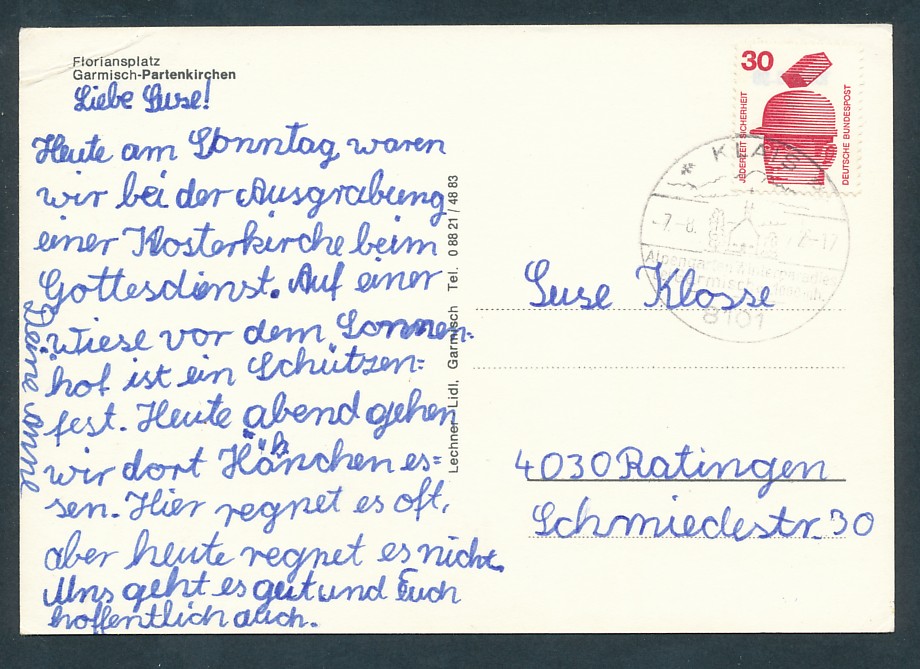 Floriansplatz
Garmisch-Partenkirchen
Liebe Suse!
Heute am Sonntag waren
wir bei der Ausgrabung
einer Klosterkirche beim
Gottesdienst. Auf einer
Wiese vor dem Sonnen=
hof ist ein Schützen=
fest. Heute abend gehen
wir dort Hähnchen es=
sen. Hier regnet es oft,
aber heute regnet es nicht.
Uns geht es gut und Euch
hoffentlich auch.
Deine Anne
Lechner - Lidl, Garmisch Tel. 0 88 21 / 48 83
30
JEDERZEIT SICHERHEIT
DEUTSCHE BUNDESPOST
KLAIS
-7.-8.
-17
8101
Suse Klosse
4030 Ratingen
Schmiedestr. 30